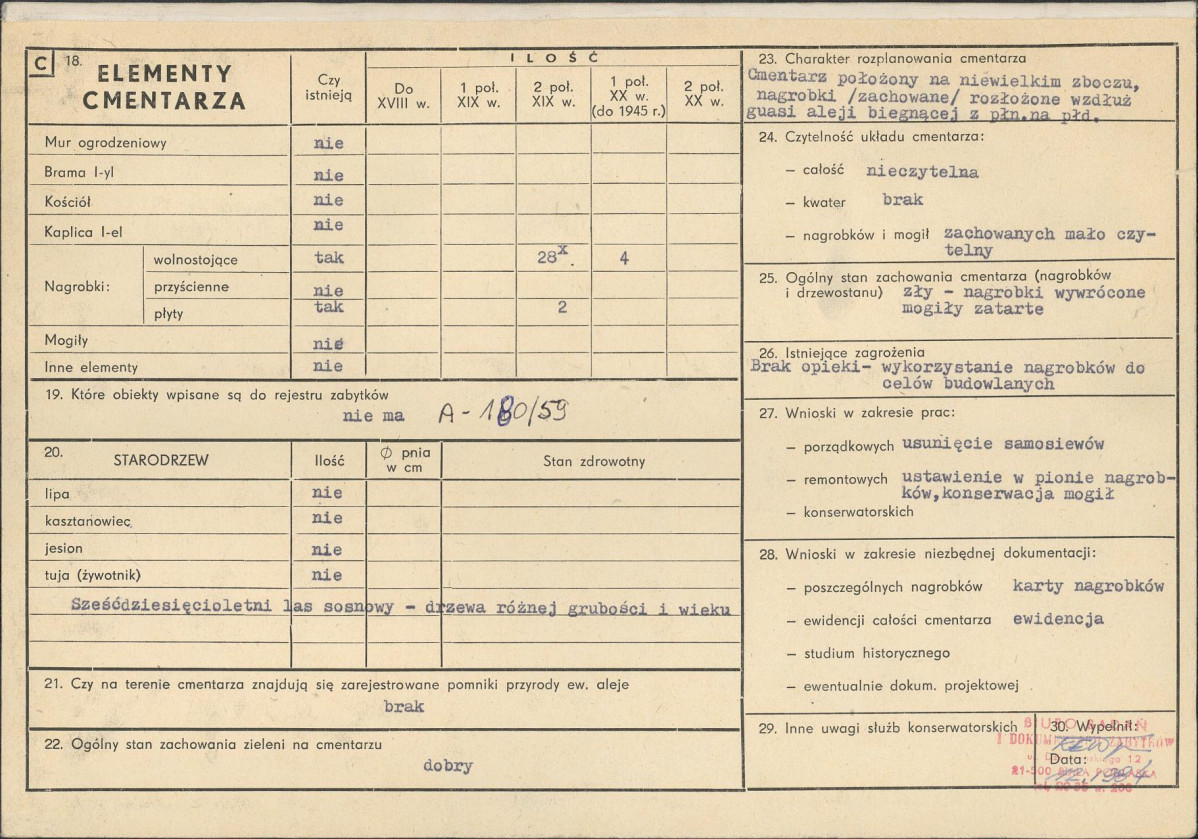 C 18. ELEMENTY
CMENTARZA
Czy
istnieją
ILOŚĆ
Do
XVIII w.
1 poł.
XIX w.
2 poł.
XIX w.
1 poł.
XX w.
(do 1945 r.)
2 poł.
XX w.
Mur ogrodzeniowy nie
Brama I-yl nie
Kościół nie
Kaplica I-el nie
Nagrobki:
wolnostojące tak 28x. 4
przyścienne nie
płyty tak 2
Mogiły nie
Inne elementy nie
19. Które obiekty wpisane są do rejestru zabytków
nie ma A-180/59
20. STARODRZEW Ilość Ø pnia
w cm Stan zdrowotny
lipa nie
kasztanowiec nie
jesion nie
tuja (żywotnik) nie
Sześćdziesięcioletni las sosnowy - drzewa różnej grubości i wieku
21. Czy na terenie cmentarza znajdują się zarejestrowane pomniki przyrody ew. aleje
brak
22. Ogólny stan zachowania zieleni na cmentarzu
dobry
23. Charakter rozplanowania cmentarza
Cmentarz położony na niewielkim zboczu,
nagrobki /zachowane/ rozłożone wzdłuż
guasi aleji biegnącej z płn.na płd.
24. Czytelność układu cmentarza:
— całość nieczytelna
— kwater brak
— nagrobków i mogił zachowanych mało czy-
telny
25. Ogólny stan zachowania cmentarza (nagrobków
i drzewostanu) zły - nagrobki wywrócone
mogiły zatarte
26. Istniejące zagrożenia
Brak opieki- wykorzystanie nagrobków do
celów budowlanych
27. Wnioski w zakresie prac:
— porządkowych usunięcie samosiewów
— remontowych ustawienie w pionie nagrob-
ków,konserwacja mogił
— konserwatorskich
28. Wnioski w zakresie niezbędnej dokumentacji:
— poszczególnych nagrobków karty nagrobków
— ewidencji całości cmentarza ewidencja
— studium historycznego
— ewentualnie dokum. projektowej
29. Inne uwagi służb konserwatorskich
30. Wypełnił:
Data:
BIURO BADAŃ
I DOKUMENTACJI ZABYTKÓW
12
21-500 BIAŁA PODLASKA